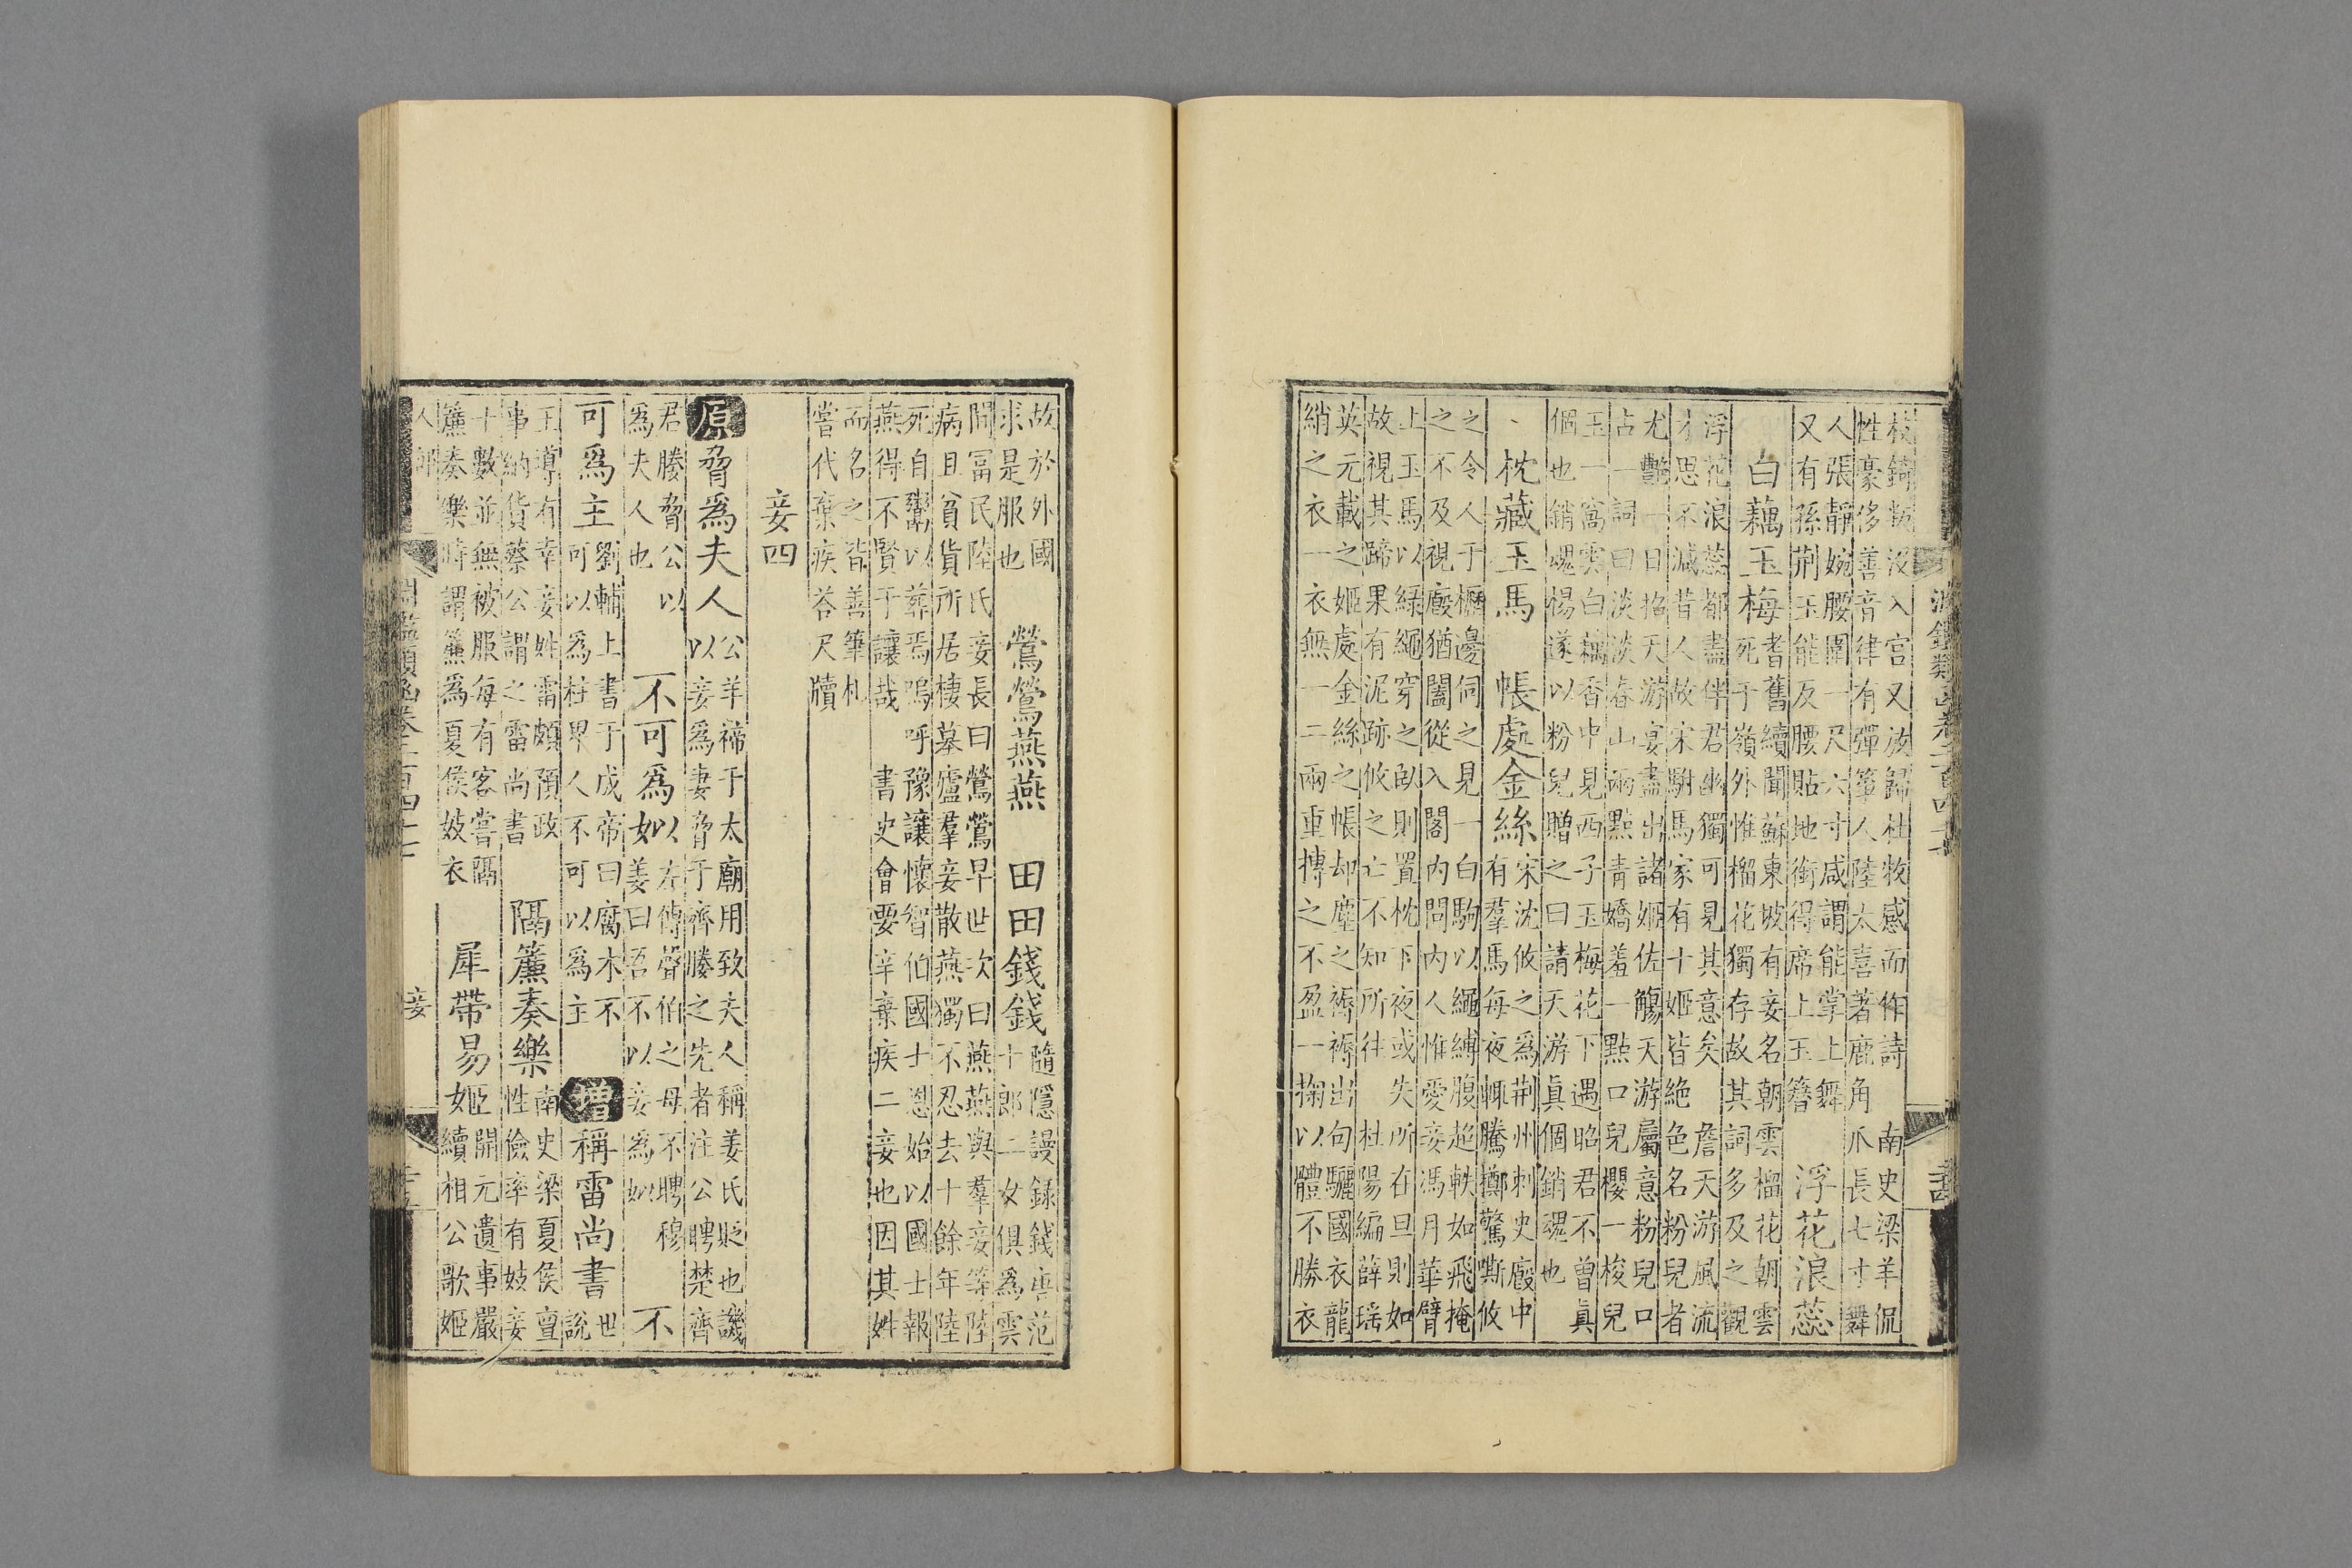 淵鑑類函卷二百四十七
枝錡叛沒入宮又放歸杜牧感而作詩 南史梁羊侃
性豪侈善音律有彈箏人陸太喜著鹿角爪長七寸舞
人張靜婉腰圍一尺六寸咸謂能掌上舞
又有孫荆玉能反腰貼地銜得席上玉簪
浮花浪蕊
白藕玉梅
耆舊續聞蘇東坡有妾名朝雲榴花朝雲
死于嶺外惟榴花獨存故其詞多及之觀
浮花浪蕊都盡伴君幽獨可見其意矣 詹天游風流
才思不減昔人故宋駙馬家有十姬皆絶色名粉兒者
尤艷一日招天游宴盡出諸姬佐觴天游屬意粉兒口
占一詞曰淡淡春山兩點青嬌羞一點口兒櫻一梭兒
玉一窩雲白藕香中見西子玉梅花下遇昭君不曾眞
個也銷魂楊遂以粉兒贈之曰請天游眞個銷魂也
枕藏玉馬 帳處金絲
宋沈攸之爲荆州刺史廄中
有羣馬每夜輒騰擲驚嘶攸
之令人于櫪邊伺之見一白駒以繩縛腹超軼如飛掩
之不及視廄猶闔從入閣内問内人惟愛妾馮月華臂
上玉馬以綠繩穿之臥則置枕下夜或失所在旦則如
故視其蹄果有泥跡攸之亡不知所往 杜陽編薛瑶
英元載之姬處金絲之帳却塵之褥褥出句驪國衣龍
綃之衣一衣無一二兩重摶之不盈一掬以體不勝衣
故於外國
求是服也
鶯鶯燕燕 田田錢錢
隨隱謾録錢唐范
十郎二女俱爲雲
間富民陸氏妾長曰鶯鶯早世次曰燕燕與羣妾等陸
病且貧貨所居棲墓廬羣妾散燕獨不忍去十餘年陸
死自鬻以葬焉嗚呼豫讓懷智伯國士恩始以國士報
燕得不賢于讓哉 書史會要辛棄疾二妾也因其姓
而名之皆善筆札
嘗代棄疾荅尺牘
妾四
原 脅爲夫人
公羊禘于太廟用致夫人稱姜氏貶也譏
以妾爲妻脅于齊媵之先者注公聘楚齊
君媵脅公以
爲夫人也
不可爲姒
左傳聲伯之母不聘穆
姜曰吾不以妾爲姒
不
可爲主
劉輔上書于成帝曰腐木不
可以爲柱卑人不可以爲主
增 稱雷尚書
世
說
王導有幸妾姓雷頗預政
事納貨蔡公謂之雷尚書
隔簾奏樂
南史梁夏侯亶
性儉率有妓妾
十數並無被服每有客嘗隔
簾奏樂時謂簾爲夏侯妓衣
犀帶易姬
開元遺事嚴
續相公歌姬
淵鑑類函卷二百四十七
妾